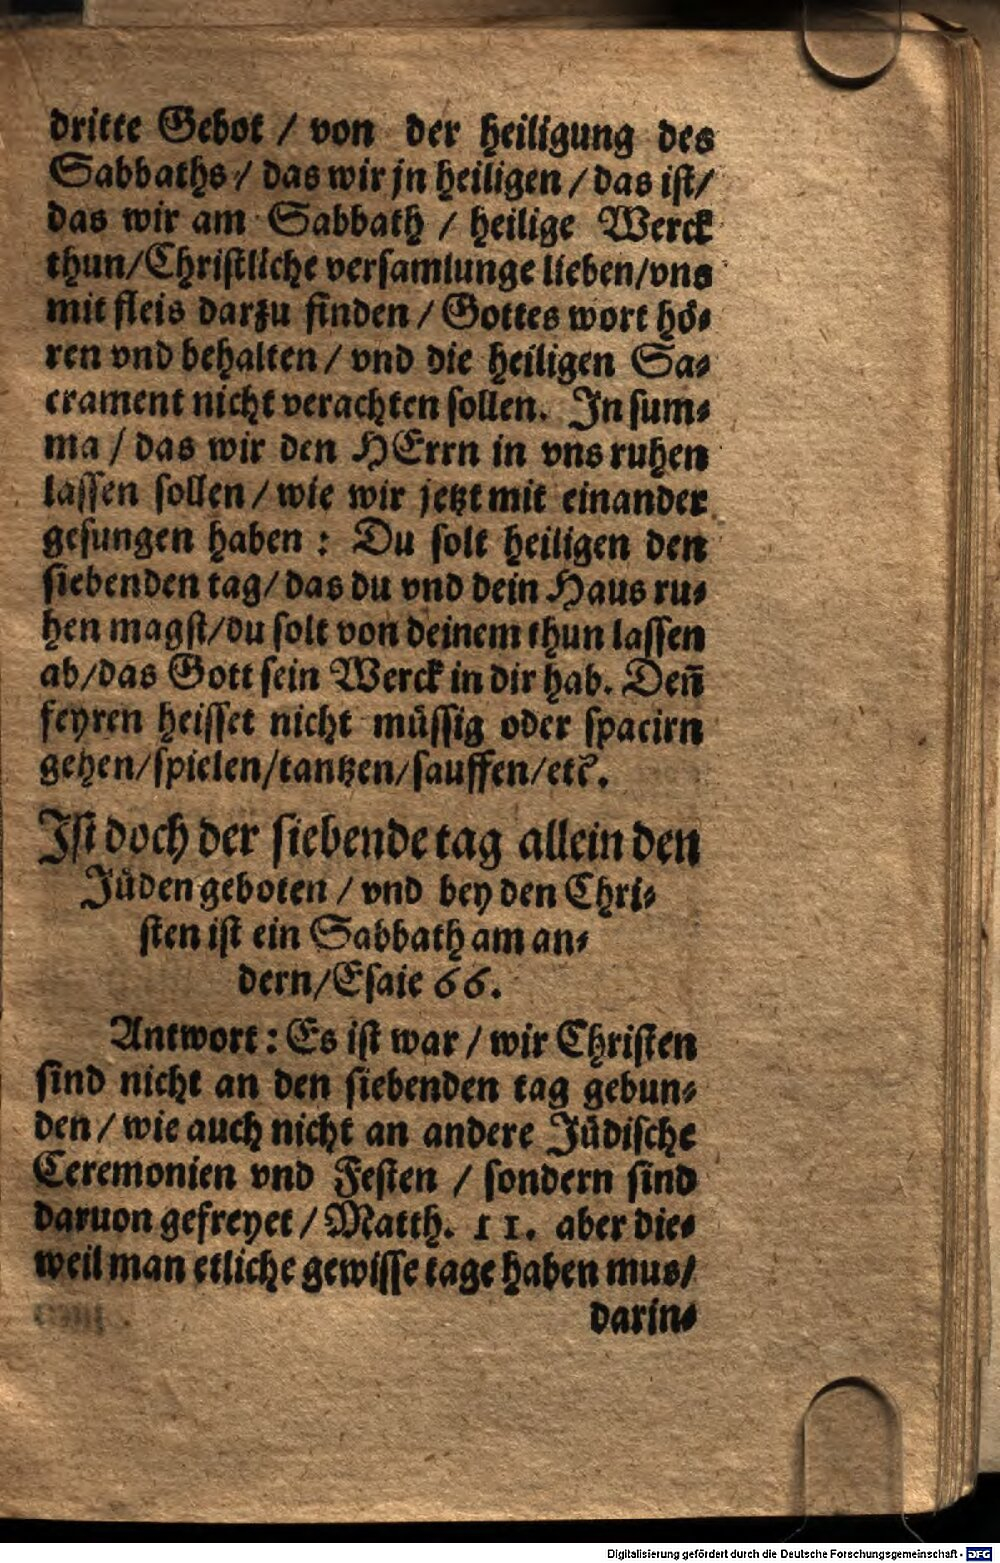 dritte Gebot / von der heiligung des
Sabbaths / das wir jn heiligen / das ist /
das wir am Sabbath / heilige Werck
thun/Christliche versamlunge lieben/vns
mit fleis darzu finden / Gottes wort hoͤ-
ren vnd behalten / vnd die heiligen Sa-
crament nicht verachten sollen. In sum-
ma / das wir den HErrn in vns ruhen
lassen sollen / wie wir jetzt mit einander
gesungen haben : Du solt heiligen den
siebenden tag/ das du vnd dein Haus ru-
hen magst/du solt von deinem thun lassen
ab/das Gott sein Werck in dir hab. Deñ
feyren heisset nicht muͤssig oder spacirn
gehen/spielen/tantzen/sauffen/etc.
Ist doch der siebende tag allein den
Juͤden geboten / vnd bey den Chri-
sten ist ein Sabbath am an-
dern/Esaie 66.
Antwort : Es ist war / wir Christen
sind nicht an den siebenden tag gebun-
den / wie auch nicht an andere Juͤdische
Ceremonien vnd Festen / sondern sind
daruon gefreyet / Matth. 11. aber die-
weil man etliche gewisse tage haben mus/
darin-
Digitalisierung gefördert durch die Deutsche Forschungsgemeinschaft - DFG